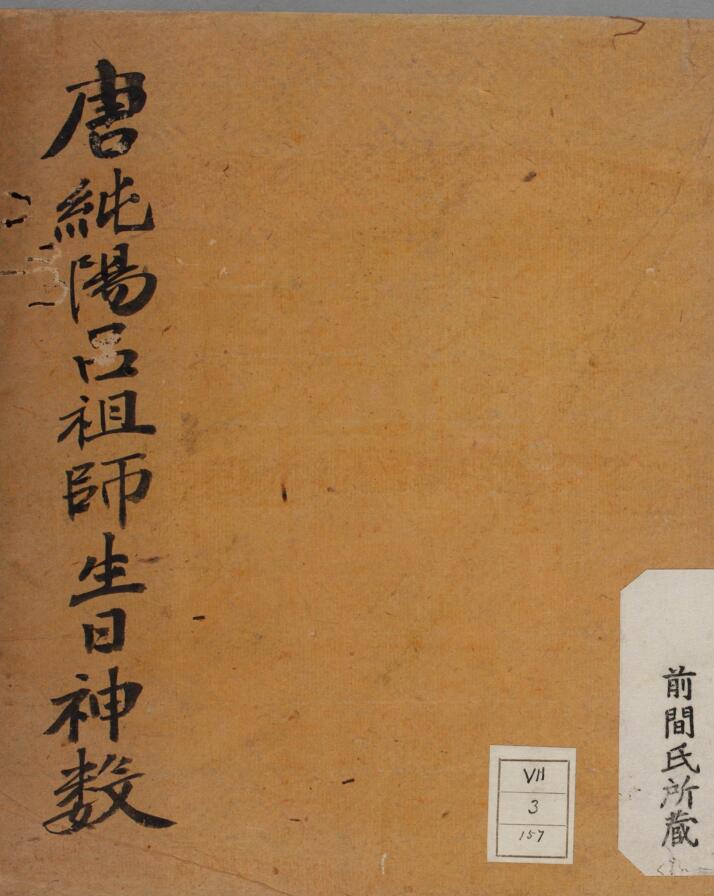 唐純陽呂祖師生日神数
前間氏所蔵
VII
3
157